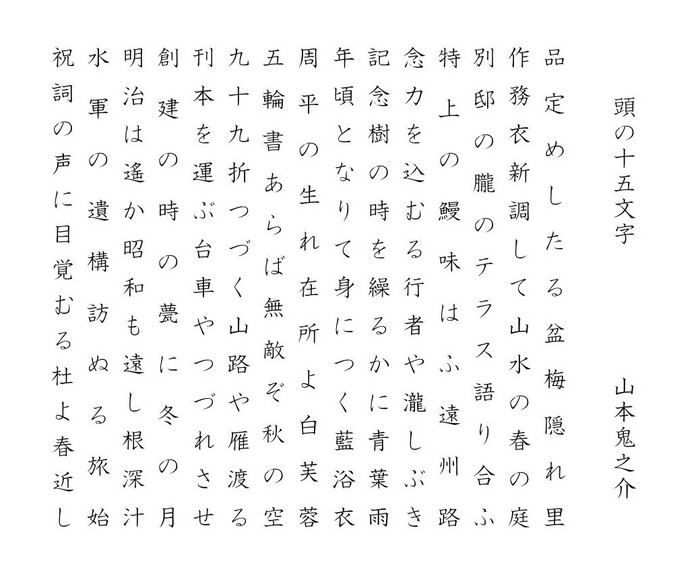 頭の十五文字
山本鬼之介
品定めしたる盆梅隠れ里
作務衣新調して山水の春の庭
別邸の朧のテラス語り合ふ
特上の鰻味はふ遠州路
念力を込むる行者や瀧しぶき
記念樹の時を繰るかに青葉雨
年頃となりて身につく藍浴衣
周平の生れ在所よ白芙蓉
五輪書あらば無敵ぞ秋の空
九十九折つづく山路や雁渡る
刊本を運ぶ台車やつづれさせ
創建の時の甍に冬の月
明治は遙か昭和も遠し根深汁
水軍の遺構訪ぬる旅始
祝詞の声に目覚むる杜よ春近し